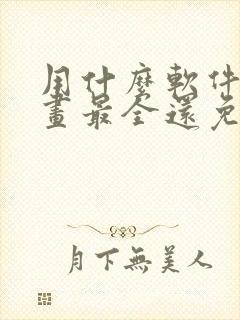 用什麼軟件
畫最全還免
月下無美人